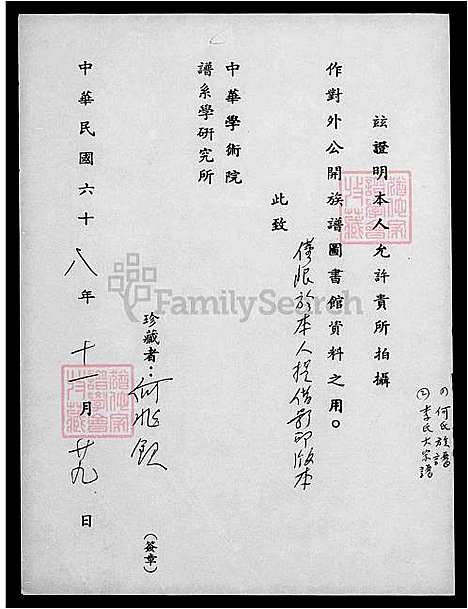 茲證明本人允許貴所拍攝
作對外公開族譜圖書館資料之用。
僅限於本人提借影印版本
此致
中華學術院
譜系學研究所
珍藏者：何兆欽
（簽章）
中華民國六十八年十一月廿九日
(1)何氏族譜
(2)李氏大宗譜
FamilySearch